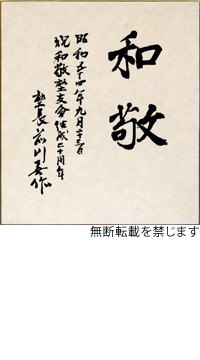 和敬
昭和五十四年九月二十三日
祝和敬塾支会結成二十周年
塾長前川喜作
無断転載を禁じます